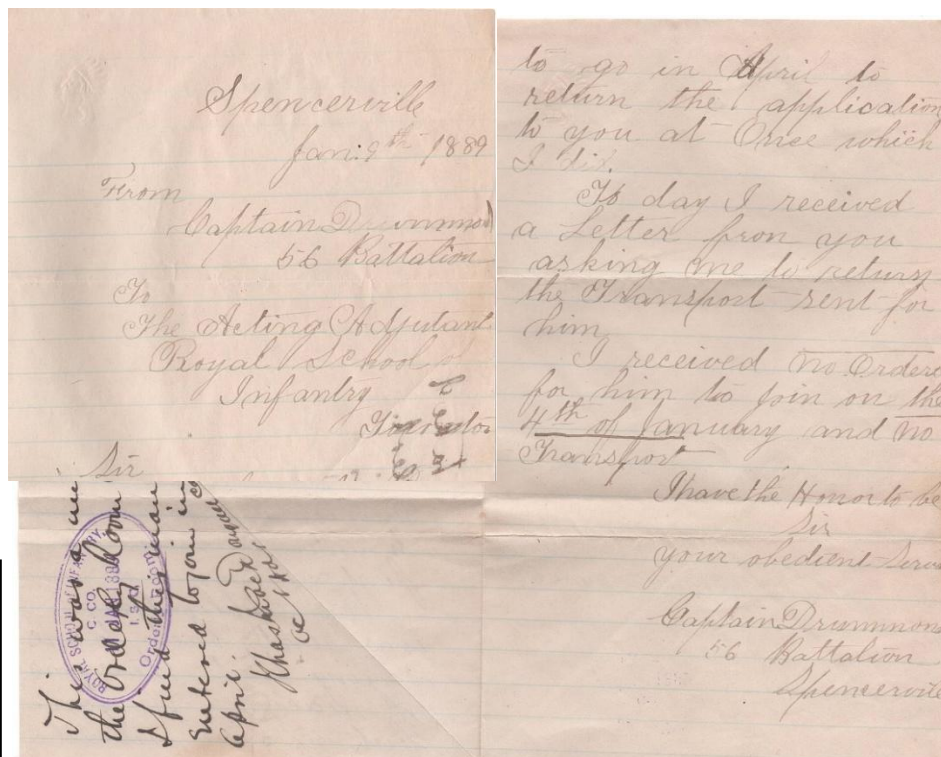 Spencerville
Jan. 9th 1889
From
Captain Drummond
56 Battalion
To
The Acting Adjutant
Royal School of
Infantry
Sir
to go in April to
return the application
to you at Once which
I did.
To day I received
a Letter from you
asking me to return
the Transport sent for
him
I received no Orders
for him to join on the
4th of January and no
Transport
I have the Honor to be
Sir
your obedient Serv
Captain Drummon
56 Battalion
Spencerville
This was an
the orderly room
I find this man
Entered to join in
April.
ROYAL SCHOOL OF INFANTRY
C. CO.
JAN